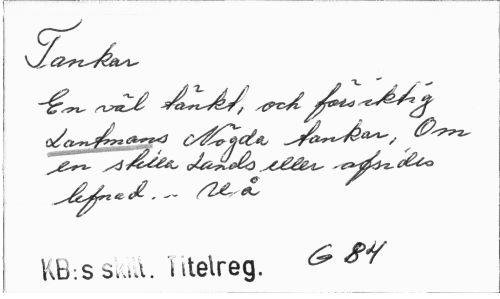 Tankar
En väl tänkt, och försiktig
Lantmans Nögda tankar, Om
en stilla Lands eller afsides
lefnad... U.å
G 84
KB:s skill. Titelreg.